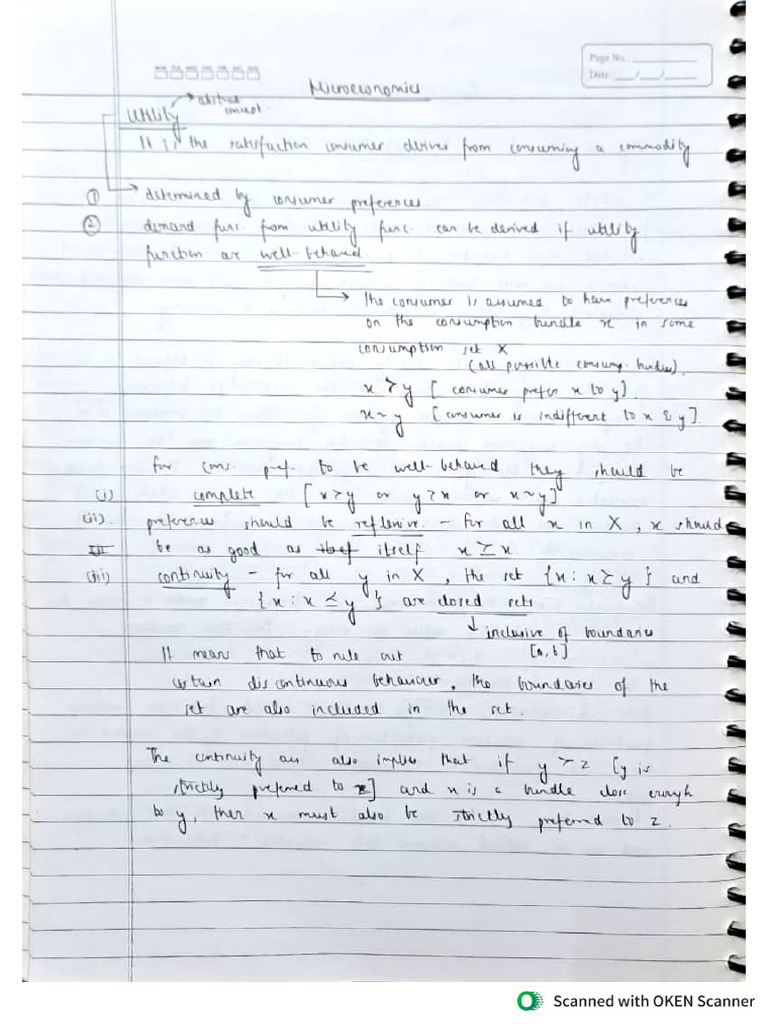 Page No.
Date: __/__/__
Microeconomics
Utility → abstract concept.
It is the satisfaction consumer derives from consuming a commodity
① determined by consumer preferences
② demand func. from utility func. can be derived if utility
function are well-behaved
the consumer is assumed to have preferences
on the consumption bundle x in some
consumption set X
(all possible consump. bundles).
x ≻ y [consumer prefers x to y].
x ~ y [consumer is indifferent to x & y].
for cons. pref. to be well-behaved they should be
(i) complete [x ≻ y or y ≻ x or x ~ y]
(ii). preferences should be reflexive - for all x in X, x should
III be as good as itself x ≽ x
(iii) continuity - for all y in X, the set {x : x ≽ y} and
{x : x ≤ y} are closed sets
↓ inclusive of boundaries
[a, b]
It mean that to rule out
certain discontinuous behaviour, the boundaries of the
set are also included in the set.
The continuity ass also implies that if y ≻ z [y is
strictly preferred to z] and x is a bundle close enough
to y, then x must also be strictly preferred to z.
Scanned with OKEN Scanner